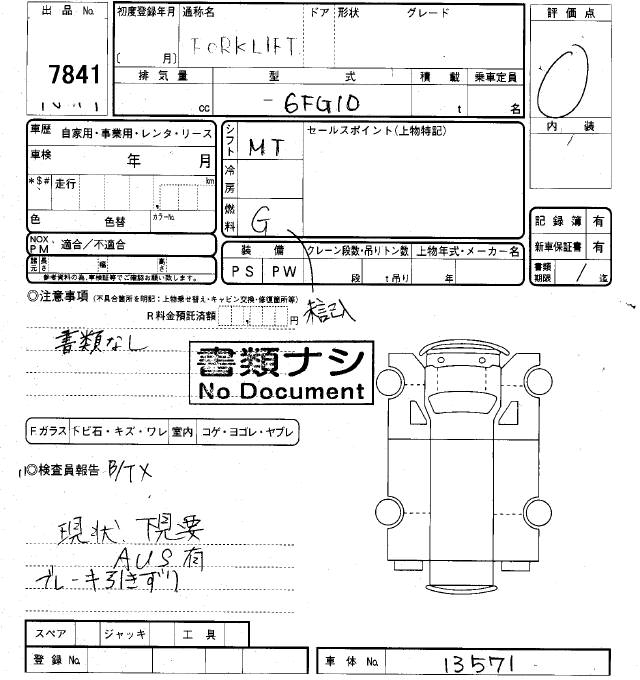 出品No. 初度登録年月 通称名 ドア 形状 グレード 評価点
7841 ( 月) FORKLIFT 0
排気量 型式 積載 乗車定員
cc -6FG10 t 名 内装
車歴 自家用・事業用・レンタ・リース シフト MT セールスポイント(上物特記)
車検 年 月 冷房
*$# 走行 km 燃料 G
色 色替 カラーNo. 記録簿 有
NOX、PM 適合/不適合 装備 クレーン段数・吊りトン数 上物年式・メーカー名 新車保証書 有
諸元 長さ 幅 高さ PS PW 段 t吊り 年 書類期限 / 迄
参考資料の為、車検証等でご確認お願い致します。
◎注意事項 (不具合箇所を明記:上物乗せ替え・キャビン交換・修復箇所等)
R料金預託済額 円 未記入
書類なし
書類ナシ
No Document
Fガラス トビ石・キズ・ワレ 室内 コゲ・ヨゴレ・ヤブレ
◎検査員報告 B/TX
現状、下見要
AUS有
ブレーキ引きずり
スペア ジャッキ 工具
登録No. 車体No. 13571